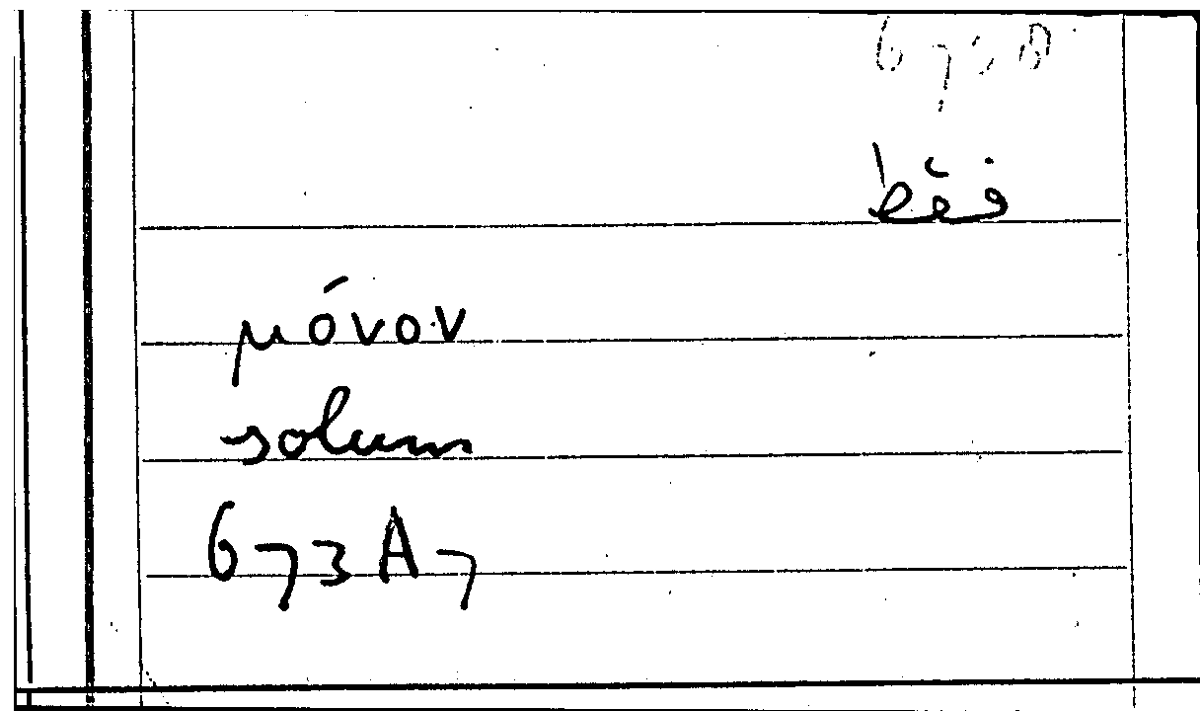 فقط
μόνον
solum
673A7